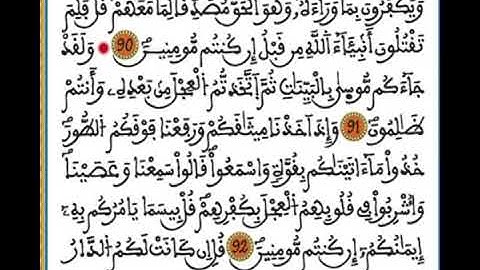 وَيَكْفُرُونَ بِمَا وَرَآءَهُۥ وَهُوَ اَ۬لْحَقُّ مُصَدِّقاٗ لِّمَا مَعَهُمْ قُلْ فَلِمَ
تَقْتُلُونَ أَنۢبِئَآءَ اَ۬للَّهِ مِن قَبْلُ إِن كُنتُم مُّومِنِينَ 90 وَلَقَدْ
جَآءَكُم مُّوسَىٰ بِالْبَيِّنَٰتِ ثُمَّ اَ۪تَّخَذتُّمُ اُ۬لْعِجْلَ مِنۢ بَعْدِهِۦ وَأَنتُمْ
ظَٰلِمُونَ 91 وَإِذَ اَخَذْنَا مِيثَٰقَكُمْ وَرَفَعْنَا فَوْقَكُمُ اُ۬لطُّورَ
خُذُواْ مَآ ءَاتَيْنَٰكُم بِقُوَّةٖ وَاسْمَعُواْ قَالُواْ سَمِعْنَا وَعَصَيْنَا
وَأُشْرِبُواْ فِے قُلُوبِهِمُ اُ۬لْعِجْلَ بِكُفْرِهِمْ قُلْ بِيسَمَا يَامُرُكُم بِهِۦٓ
إِيمَٰنُكُمُۥٓ إِن كُنتُم مُّومِنِينَ 92 قُلِ اِن كَانَتْ لَكُمُ اُ۬لدَّارُ